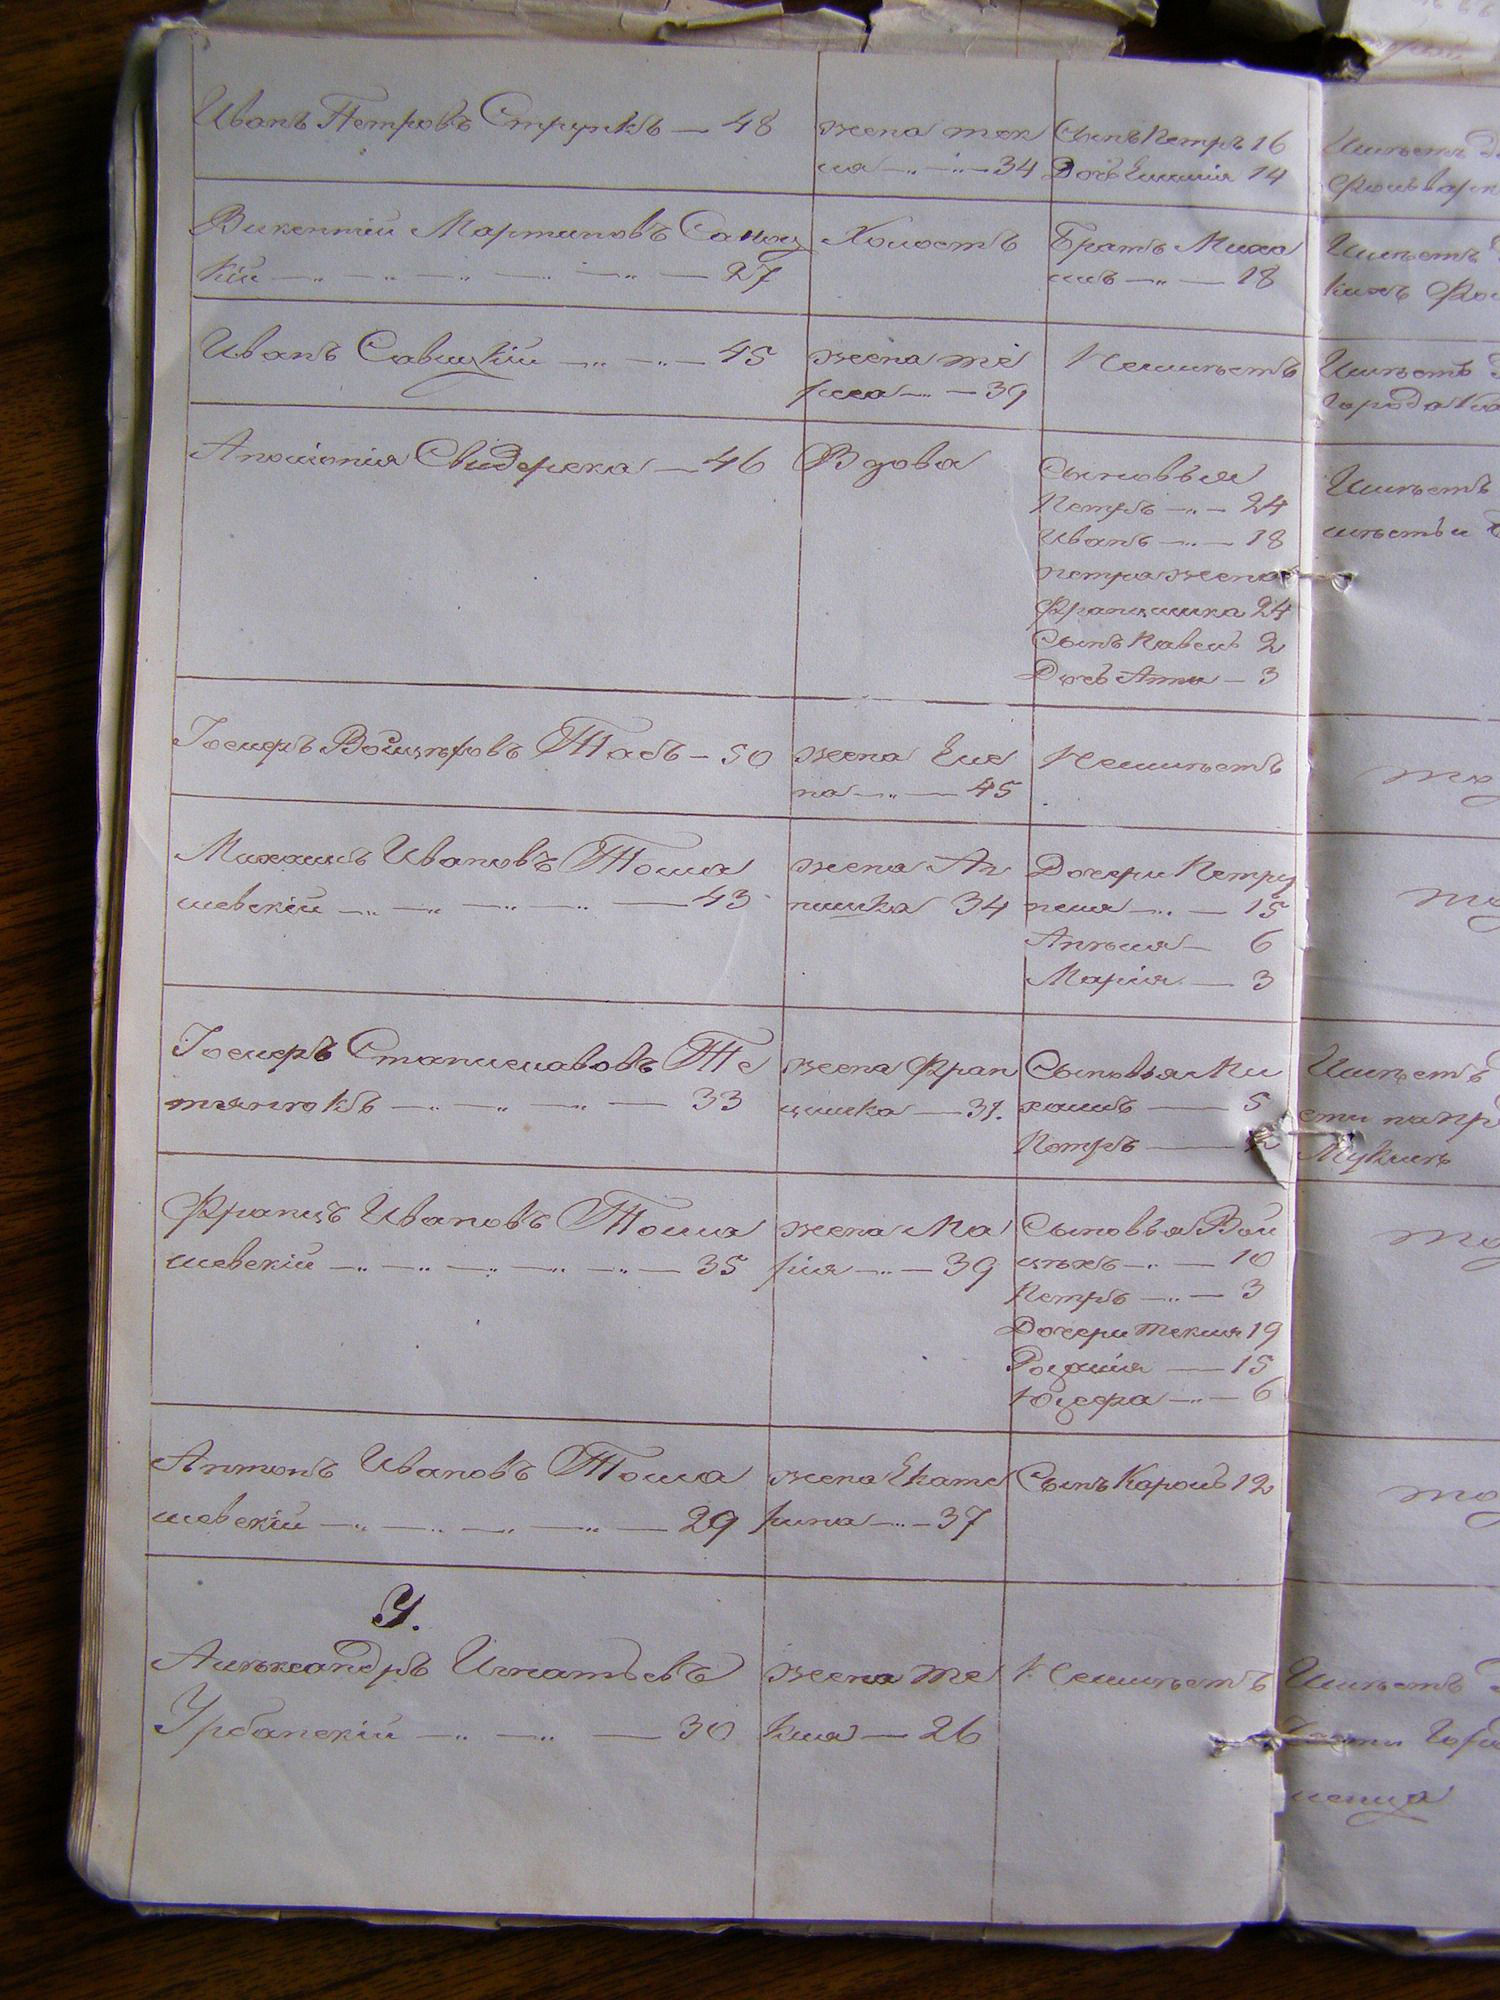 Иванъ Петровъ Струпкъ — 48
жена тек
ля — 34
Сынъ Петръ 16
Дочь Емилія 14
Викентій Мартиновъ Савиц
кій — 27
Холостъ
Братъ Миха
илъ — 18
Иванъ Савицкій — 45
жена
39
Неимѣетъ
Имѣетъ
города
Аполонія Свидерска — 46
Вдова
Сыновья
Петръ — 24
Иванъ — 18
петра жена
Францишка 24
Сынъ Павелъ 2
Дочь Анна — 3
Имѣетъ
Іосифъ Войцѣховъ — 50
жена Еле
на — 45
Неимѣетъ
Михаилъ Ивановъ Тома
шевскій — 43
жена Ан
нишка 34
Дочери Петру
неля — 15
Анѣля — 6
Марія — 3
Іосифъ Станиславовъ Те
33
жена Фран
цишка — 31.
Сыновья Ми
хаилъ — 5
Петръ — 2
Имѣетъ
Францъ Ивановъ Тома
шевскій — 35
жена Ма
рія — 39
Сыновья Вой
цѣхъ — 10
Петръ — 3
Дочери текля 19
Розалія — 15
Юзефа — 6
Антонъ Ивановъ Тома
шевскій — 29
жена Екате
рина — 37
Сынъ Кароль 12
У.
Алѣксандръ Игнатьевъ
Урбанскій — 30
жена те
кля — 26
Неимѣетъ
Имѣетъ